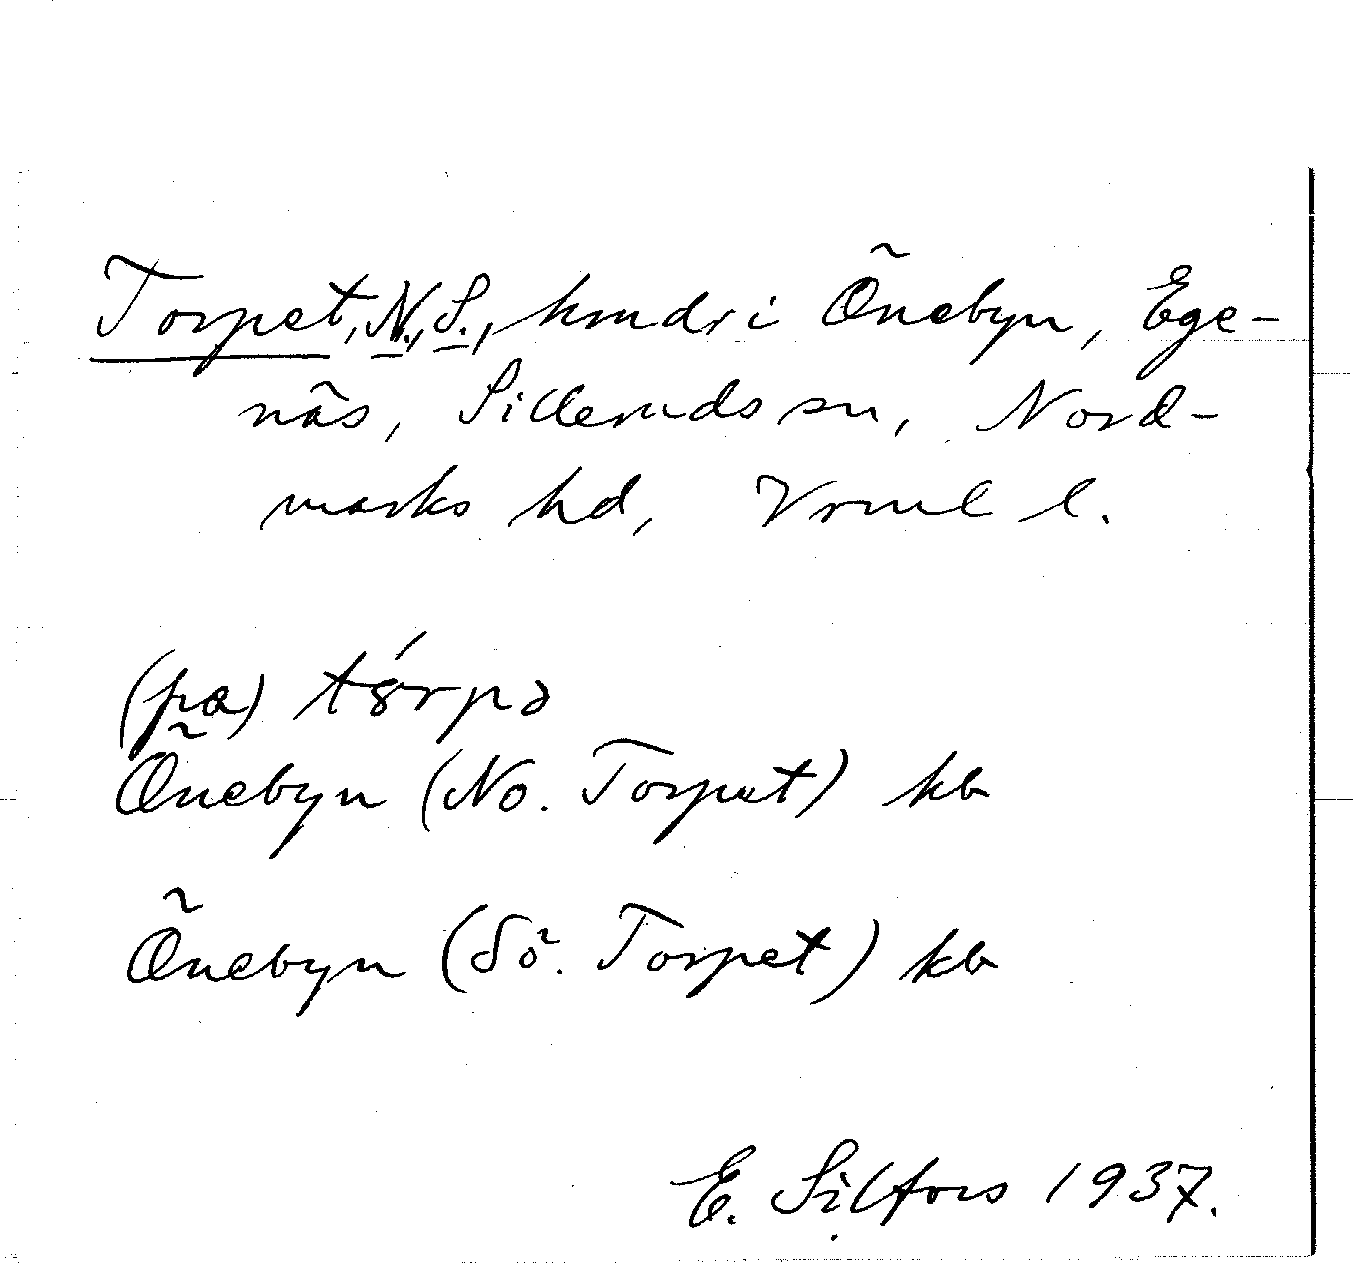 Torpet, N., S., hmdr i Önebyn, Ege-
näs, Silleruds sn, Nord-
marks hd, Vrml l.
(pa) tórpə
Önebyn (No. Torpet) kb
Önebyn (Sö. Torpet) kb
E. Silfors 1937.